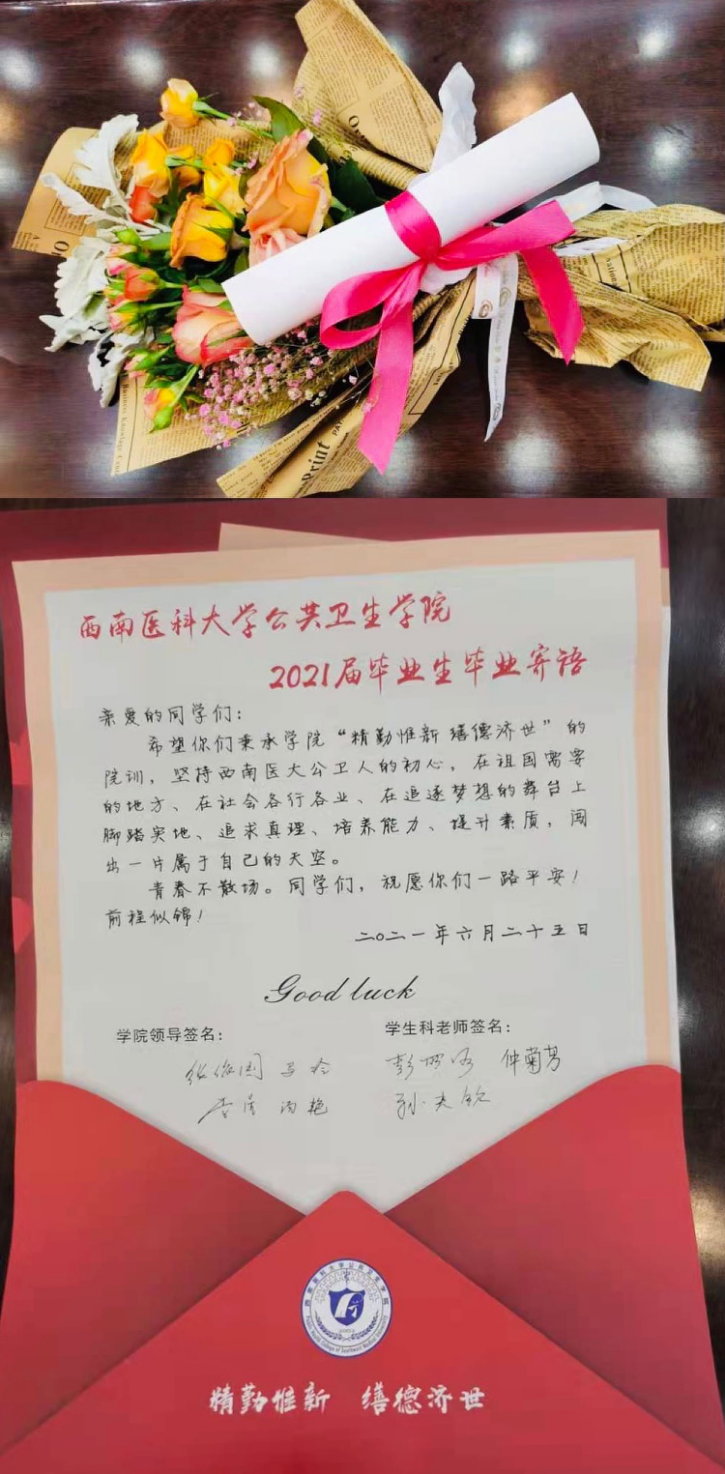 Print
西南医科大学公共卫生学院
2021届毕业生毕业寄语
亲爱的同学们:
希望你们秉承学院“精勤惟新 缮德济世”的
院训,坚持西南医大公卫人的初心,在祖国需要
的地方、在社会各行各业、在追逐梦想的舞台上
脚踏实地、追求真理、培养能力、提升素质,闯
出一片属于自己的天空。
青春不散场。同学们,祝愿你们一路平安!
前程似锦!
二〇二一年六月二十五日
Good luck
学院领导签名: 学生科老师签名:
仲菊芳
孙夫钦
西南医科大学公共卫生学院
Public Health College of Southwest Medical University
精勤惟新 缮德济世